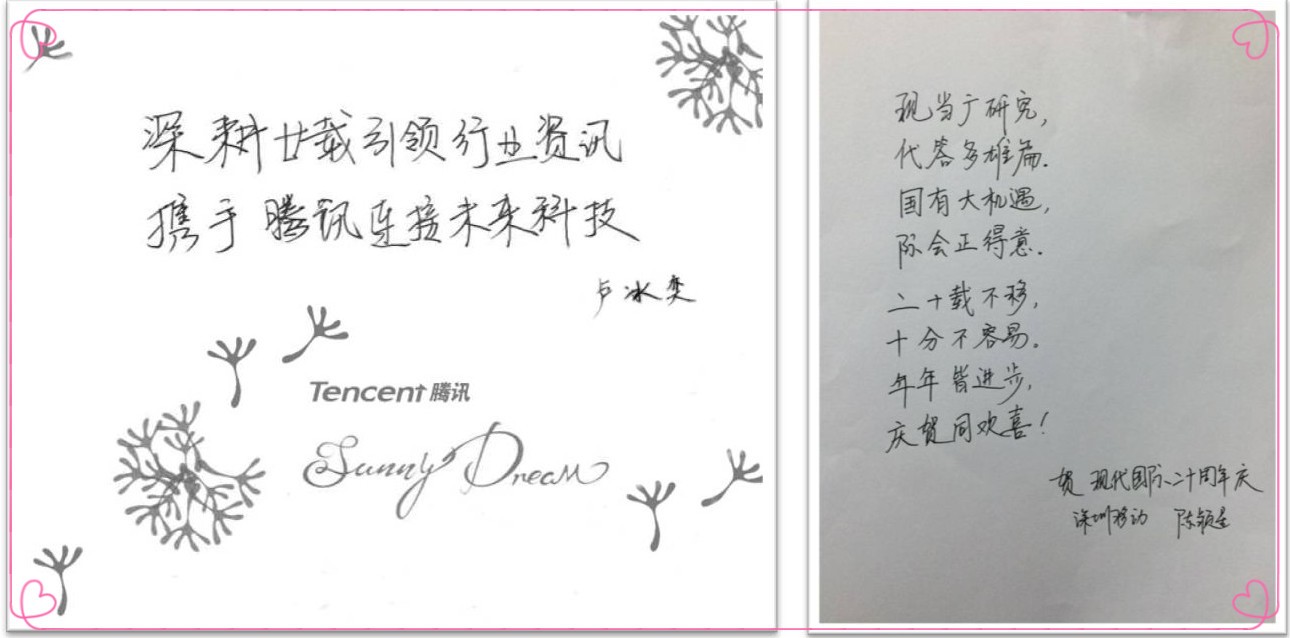 深耕廿载引领行业资讯
携手腾讯连接未来科技
卢冰奕
Tencent 腾讯
Sunny Dream
现当广研究,
代答多雄篇.
国有大机遇,
际会正得意.
二十载不移,
十分不容易。
年年皆进步,
庆贺同欢喜!
贺 现代国际二十周年庆
深圳移动 陈颖星